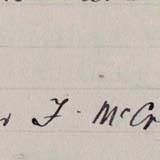 F. McCr